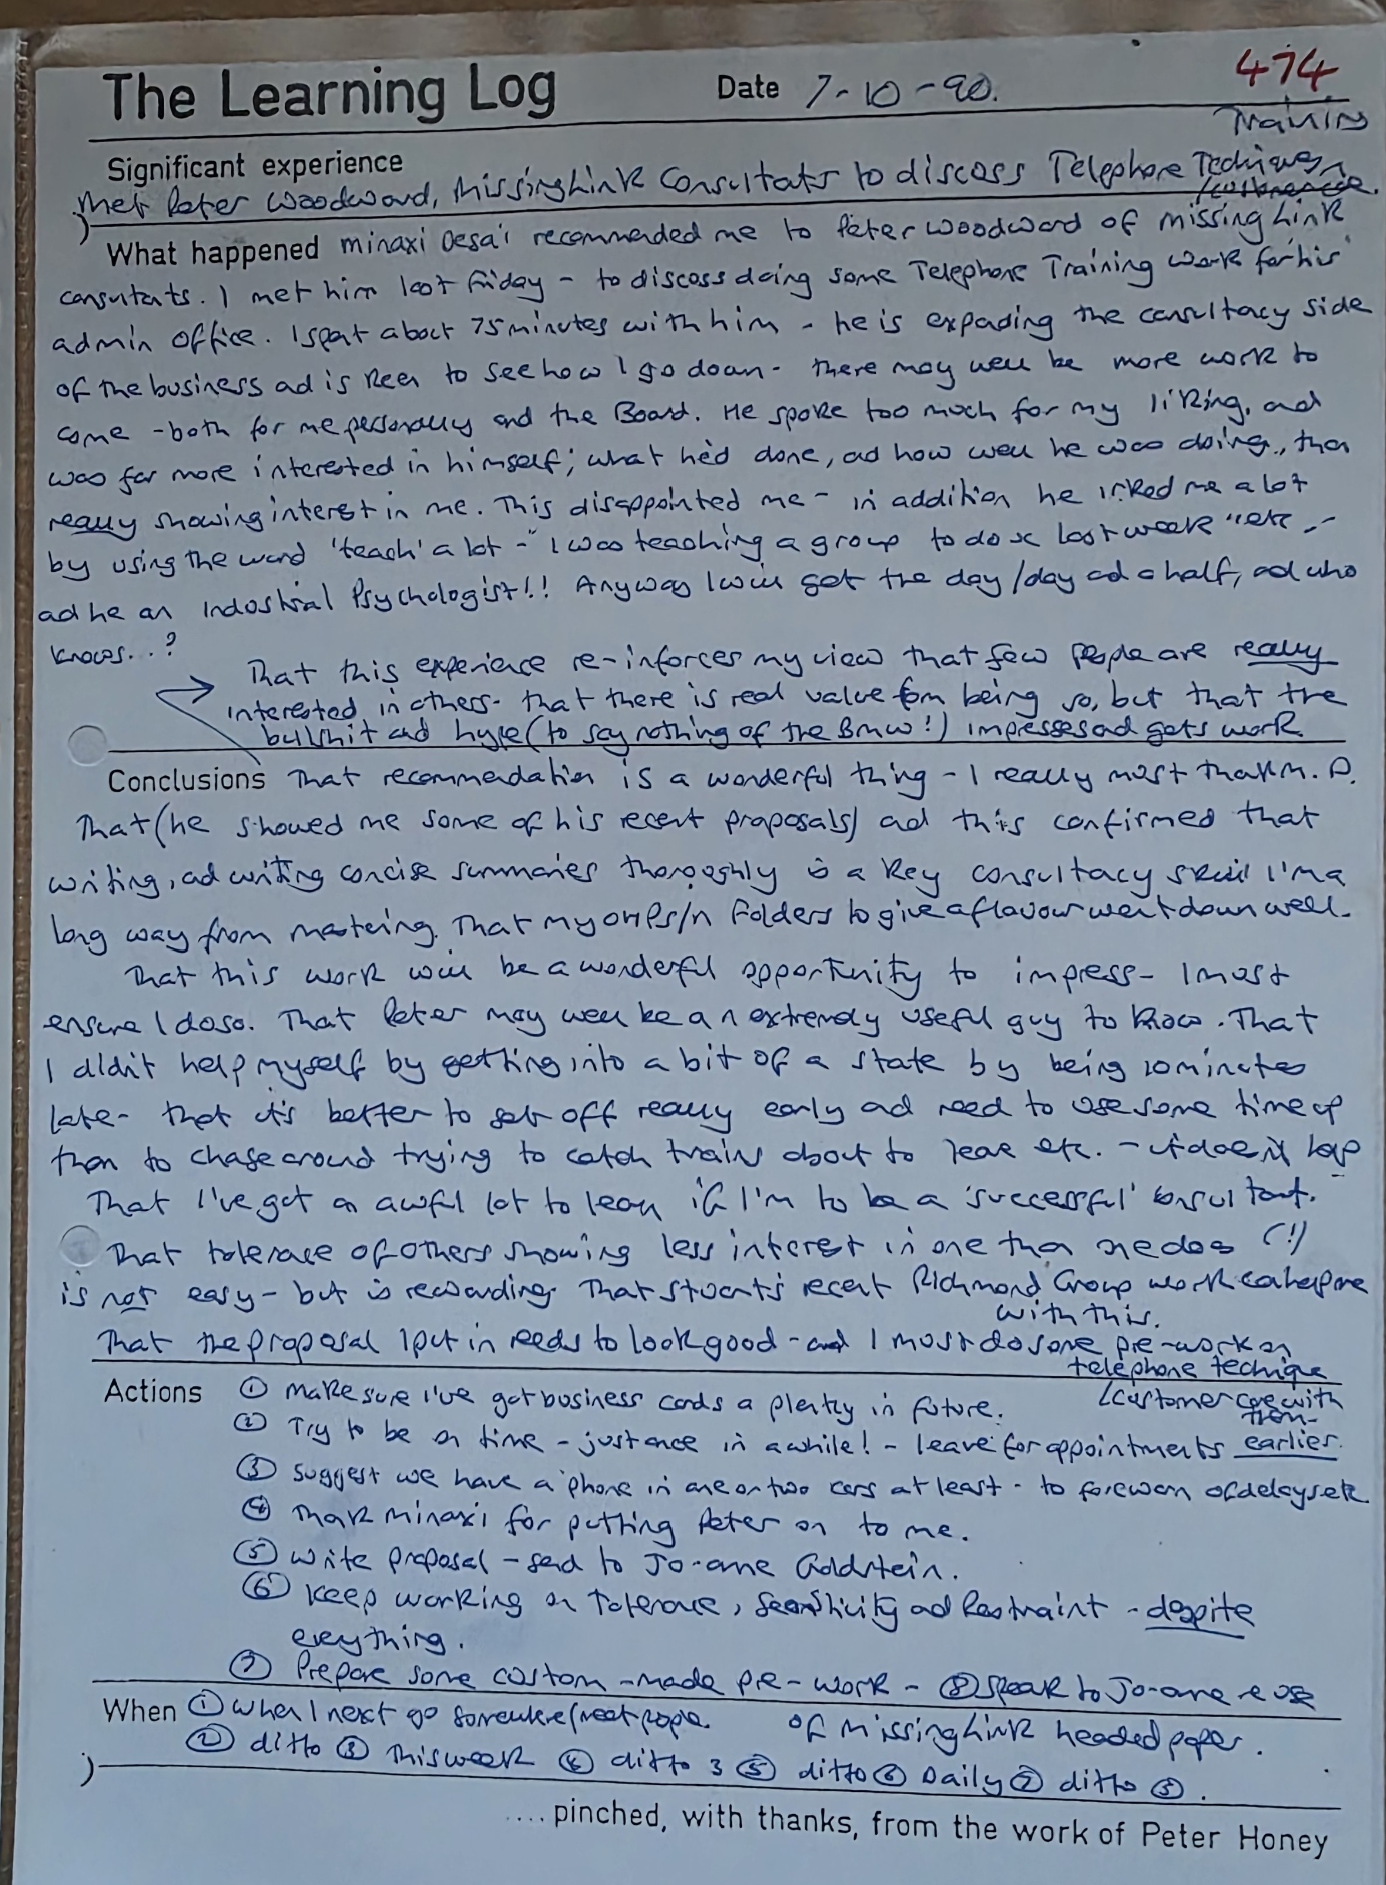 The Learning Log Date 7-10-90. 474
Training
Significant experience
Met Peter Woodward, Missing Link Consultats to discuss Telephone Techniques
What happened minaxi Desai recommended me to Peter Woodward of missing Link
consultants. I met him last Friday - to discuss doing some Telephone Training work for his
admin office. I spent about 75 minutes with him - he is expading the consultacy side
of the business ad is keen to see how I go down - there may well be more work to
come - both for me personally and the Board. He spoke too much for my liking, and
was far more interested in himself; what he'd done, ad how well he was doing, than
really showing interest in me. This disappointed me - in addition he irked me a lot
by using the word 'teach' a lot - "I was teaching a group to do x last week" etc -
ad he an Industrial Psychologist!! Anyway I will get the day/day ad a half, ad who
knows...?
That this experience re-inforces my view that few people are really
interested in others - that there is real value from being so, but that the
bullshit and hype (to say nothing of the BMW!) impresses ad gets work
Conclusions That recommendation is a wonderful thing - I really must thank M. D.
That (he showed me some of his recent proposals) ad this confirmed that
writing, ad writing concise summaries thoroughly is a key consultacy skill I'm a
long way from mastering. That my folders to give a flavour went down well.
That this work will be a wonderful opportunity to impress - I must
ensure I do so. That Peter may well be an extremely useful guy to know. That
I didn't help myself by getting into a bit of a state by being 10 minutes
late - that it's better to set off really early ad need to use some time up
than to chase around trying to catch trains about to leave etc. - it doesn't help
That I've got an awful lot to learn if I'm to be a 'successful' consultant.
That tolerace of others showing less interest in one than one does (!)
is not easy - but is rewarding. That Stuart's recent Richmond Group work can help me
with this.
That the proposal I put in needs to look good - and I must do some pre-work on
telephone technique
/customer care with
them-
Actions ① make sure I've got business cards a plenty in future.
② Try to be on time - just once in a while! - leave for appointments earlier.
③ suggest we have a 'phone in one or two cars at least - to forewarn of delays etc.
④ Thank minaxi for putting Peter on to me.
⑤ write proposal - send to Jo-anne Goldstein.
⑥ Keep working on Tolerance, Sensitivity ad Restraint - despite
everything.
⑦ Prepare some custom-made pre-work - ⑧ speak to Jo-anne re use
of Missing Link headed paper.
When ① when I next go somewhere/meet people.
② ditto ③ This week ④ ditto 3 ⑤ ditto ⑥ Daily ⑦ ditto ⑤.
.... pinched, with thanks, from the work of Peter Honey